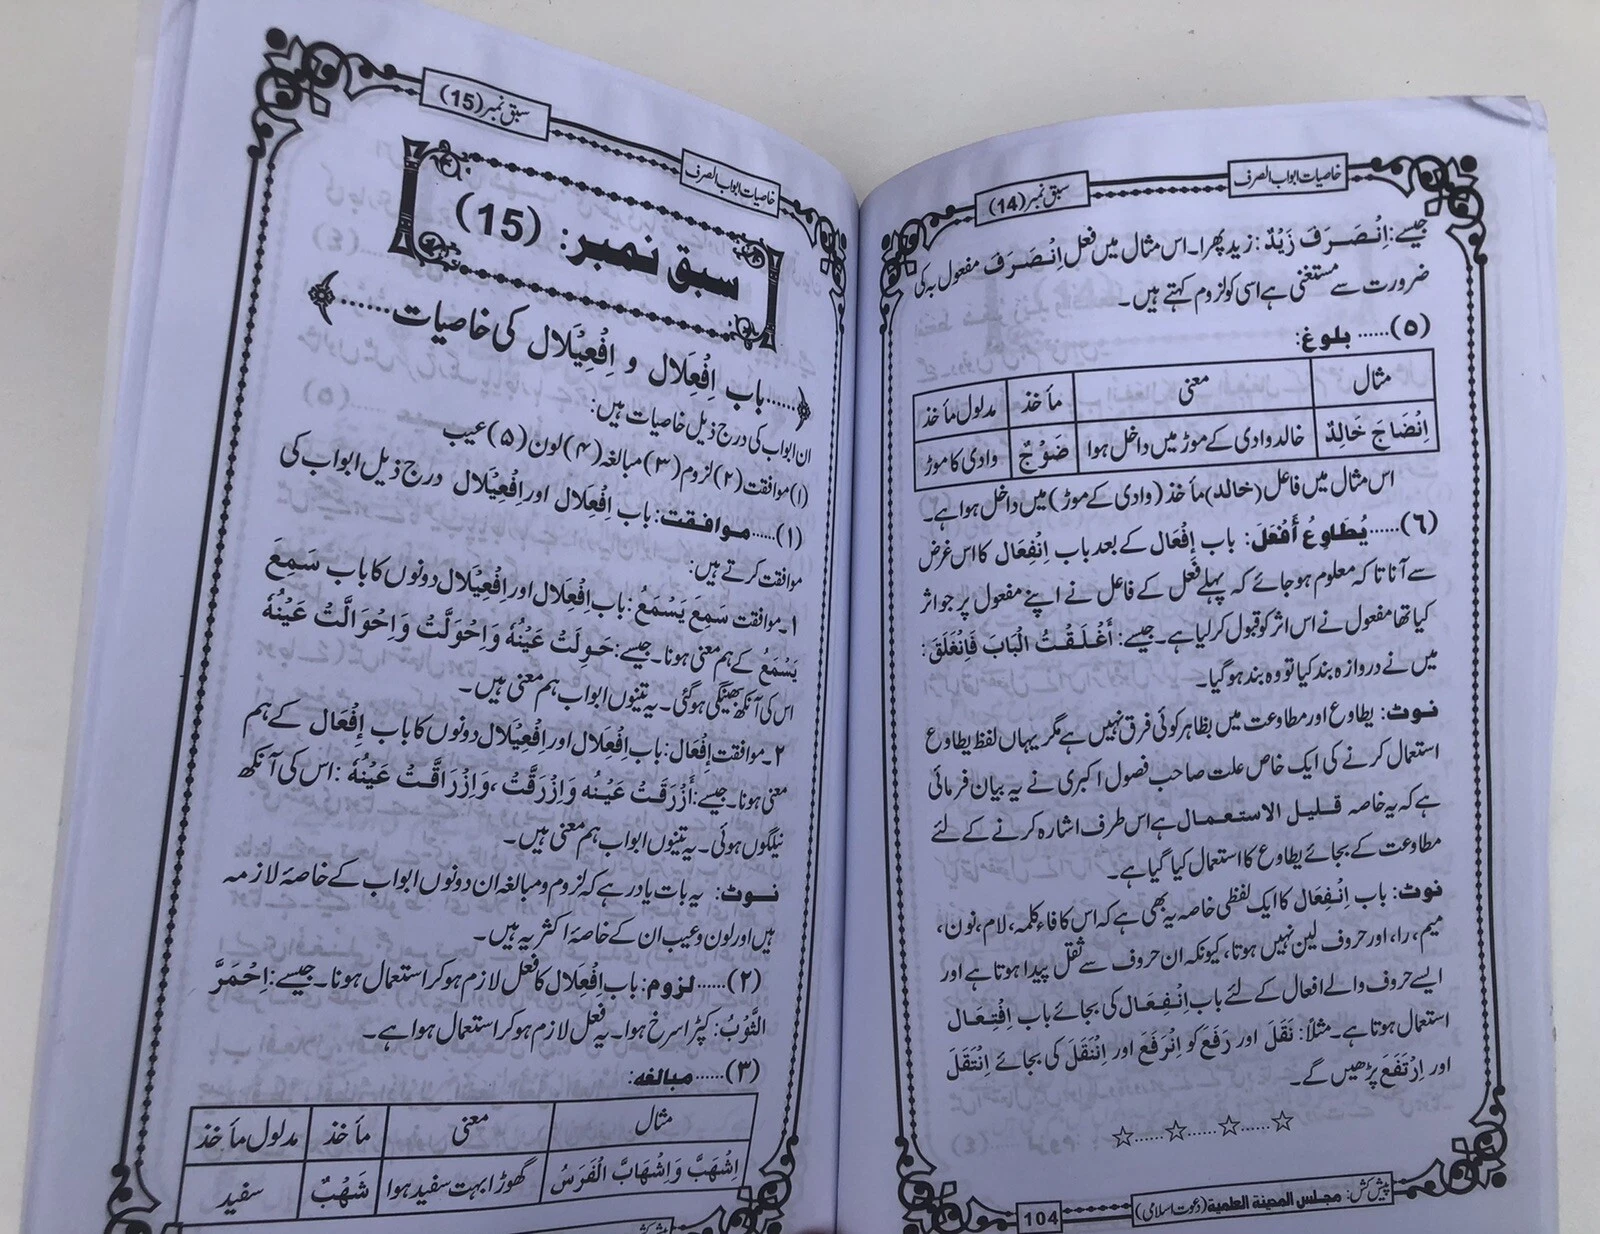 خاصیات ابواب الصرف
سبق نمبر (14)
جیسے: اِنْصَرَفَ زَیْدٌ: زید پھرا۔ اس مثال میں فعل اِنْصَرَفَ مفعول بہ کی
ضرورت سے مستغنی ہے اسی کو لزوم کہتے ہیں۔
(۵)...... بلوغ:
مثال معنی مأخذ مدلول مأخذ
اِنْضَاجَ خَالِدٌ خالد وادی کے موڑ میں داخل ہوا ضَوْجٌ وادی کا موڑ
اس مثال میں فاعل (خالد) مأخذ (وادی کے موڑ) میں داخل ہوا ہے۔
(۶)...... یُطَاوِعُ أَفْعَلَ: باب إِفْعَال کے بعد باب اِنْفِعَال کا اس غرض
سے آنا تاکہ معلوم ہو جائے کہ پہلے فعل کے فاعل نے اپنے مفعول پر جو اثر
کیا تھا مفعول نے اس اثر کو قبول کر لیا ہے۔ جیسے: أَغْلَقْتُ الْبَابَ فَانْغَلَقَ:
میں نے دروازہ بند کیا تو وہ بند ہو گیا۔
نوٹ: یطاوع اور مطاوعت میں بظاہر کوئی فرق نہیں ہے مگر یہاں لفظ یطاوع
استعمال کرنے کی ایک خاص علت صاحب فصول اکبری نے یہ بیان فرمائی
ہے کہ یہ خاصہ قلیل الاستعمال ہے اس طرف اشارہ کرنے کے لئے
مطاوعت کے بجائے یطاوع کا استعمال کیا گیا ہے۔
نوٹ: باب اِنْفِعَال کا ایک لفظی خاصہ یہ بھی ہے کہ اس کا فاء کلمہ، لام، نون،
میم، را، اور حروف لین نہیں ہوتا، کیونکہ ان حروف سے ثقل پیدا ہوتا ہے اور
ایسے حروف والے افعال کے لئے باب اِنْفِعَال کی بجائے باب اِفْتِعَال
استعمال ہوتا ہے۔ مثلاً: نَقَلَ اور رَفَعَ کو اِنْرَفَعَ اور اِنْنَقَلَ کی بجائے اِنْتَقَلَ
اور اِرْتَفَعَ پڑھیں گے۔
☆......☆......☆......☆
پیش کش: مجلس المدینۃ العلمیۃ (دعوت اسلامی)
104
خاصیات ابواب الصرف
سبق نمبر (15)
سبق نمبر: (15)
......باب اِفْعِلَال و اِفْعِیْلَال کی خاصیات......
ان ابواب کی درج ذیل خاصیات ہیں:
(۱) موافقت (۲) لزوم (۳) مبالغہ (۴) لون (۵) عیب
(۱)...... موافقت: باب اِفْعِلَال اور اِفْعِیْلَال درج ذیل ابواب کی
موافقت کرتے ہیں:
۱۔ موافقت سَمِعَ یَسْمَعُ: باب اِفْعِلَال اور اِفْعِیْلَال دونوں کا باب سَمِعَ
یَسْمَعُ کے ہم معنی ہونا۔ جیسے: حَوِلَتْ عَیْنُہٗ وَاِحْوَلَّتْ وَاِحْوَالَّتْ عَیْنُہٗ
اس کی آنکھ بھینگی ہو گئی۔ یہ تینوں ابواب ہم معنی ہیں۔
۲۔ موافقت إِفْعَال: باب اِفْعِلَال اور اِفْعِیْلَال دونوں کا باب إِفْعَال کے ہم
معنی ہونا۔ جیسے: أَزْرَقَتْ عَیْنُہٗ وَاِزْرَقَّتْ، وَاِزْرَاقَّتْ عَیْنُہٗ: اس کی آنکھ
نیلگوں ہوئی۔ یہ تینوں ابواب ہم معنی ہیں۔
نوٹ: یہ بات یاد رہے کہ لزوم و مبالغہ ان دونوں ابواب کے خاصۂ لازمہ
ہیں اور لون و عیب ان کے خاصۂ اکثریہ ہیں۔
(۲)...... لزوم: باب اِفْعِلَال کا فعل لازم ہو کر استعمال ہونا۔ جیسے: اِحْمَرَّ
الثَّوْبُ: کپڑا سرخ ہوا۔ یہ فعل لازم ہو کر استعمال ہوا ہے۔
(۳)...... مبالغہ:
مثال معنی مأخذ مدلول مأخذ
اِشْهَبَّ وَاِشْهَابَّ الْفَرَسُ گھوڑا بہت سفید ہوا شَهْبٌ سفید